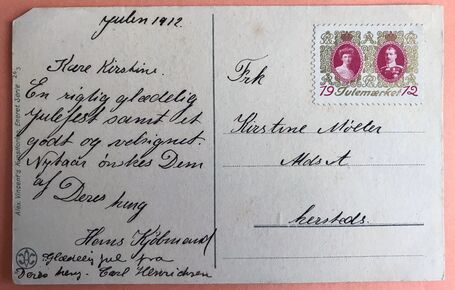 Julen 1912.
Kære Kirstine.
En rigtig glædelig
Julefest samt et
godt og velsignet.
Nytaar ønskes Dem
af Deres heng
Hans Købmand
Glædelig jul fra
Deres heng. Carl Henrichsen
Alex Vincent's Kunstforlag Eneret Serie
Frk
19 Julemærket 12
Kirstine Møller
Mds A
hersteds.